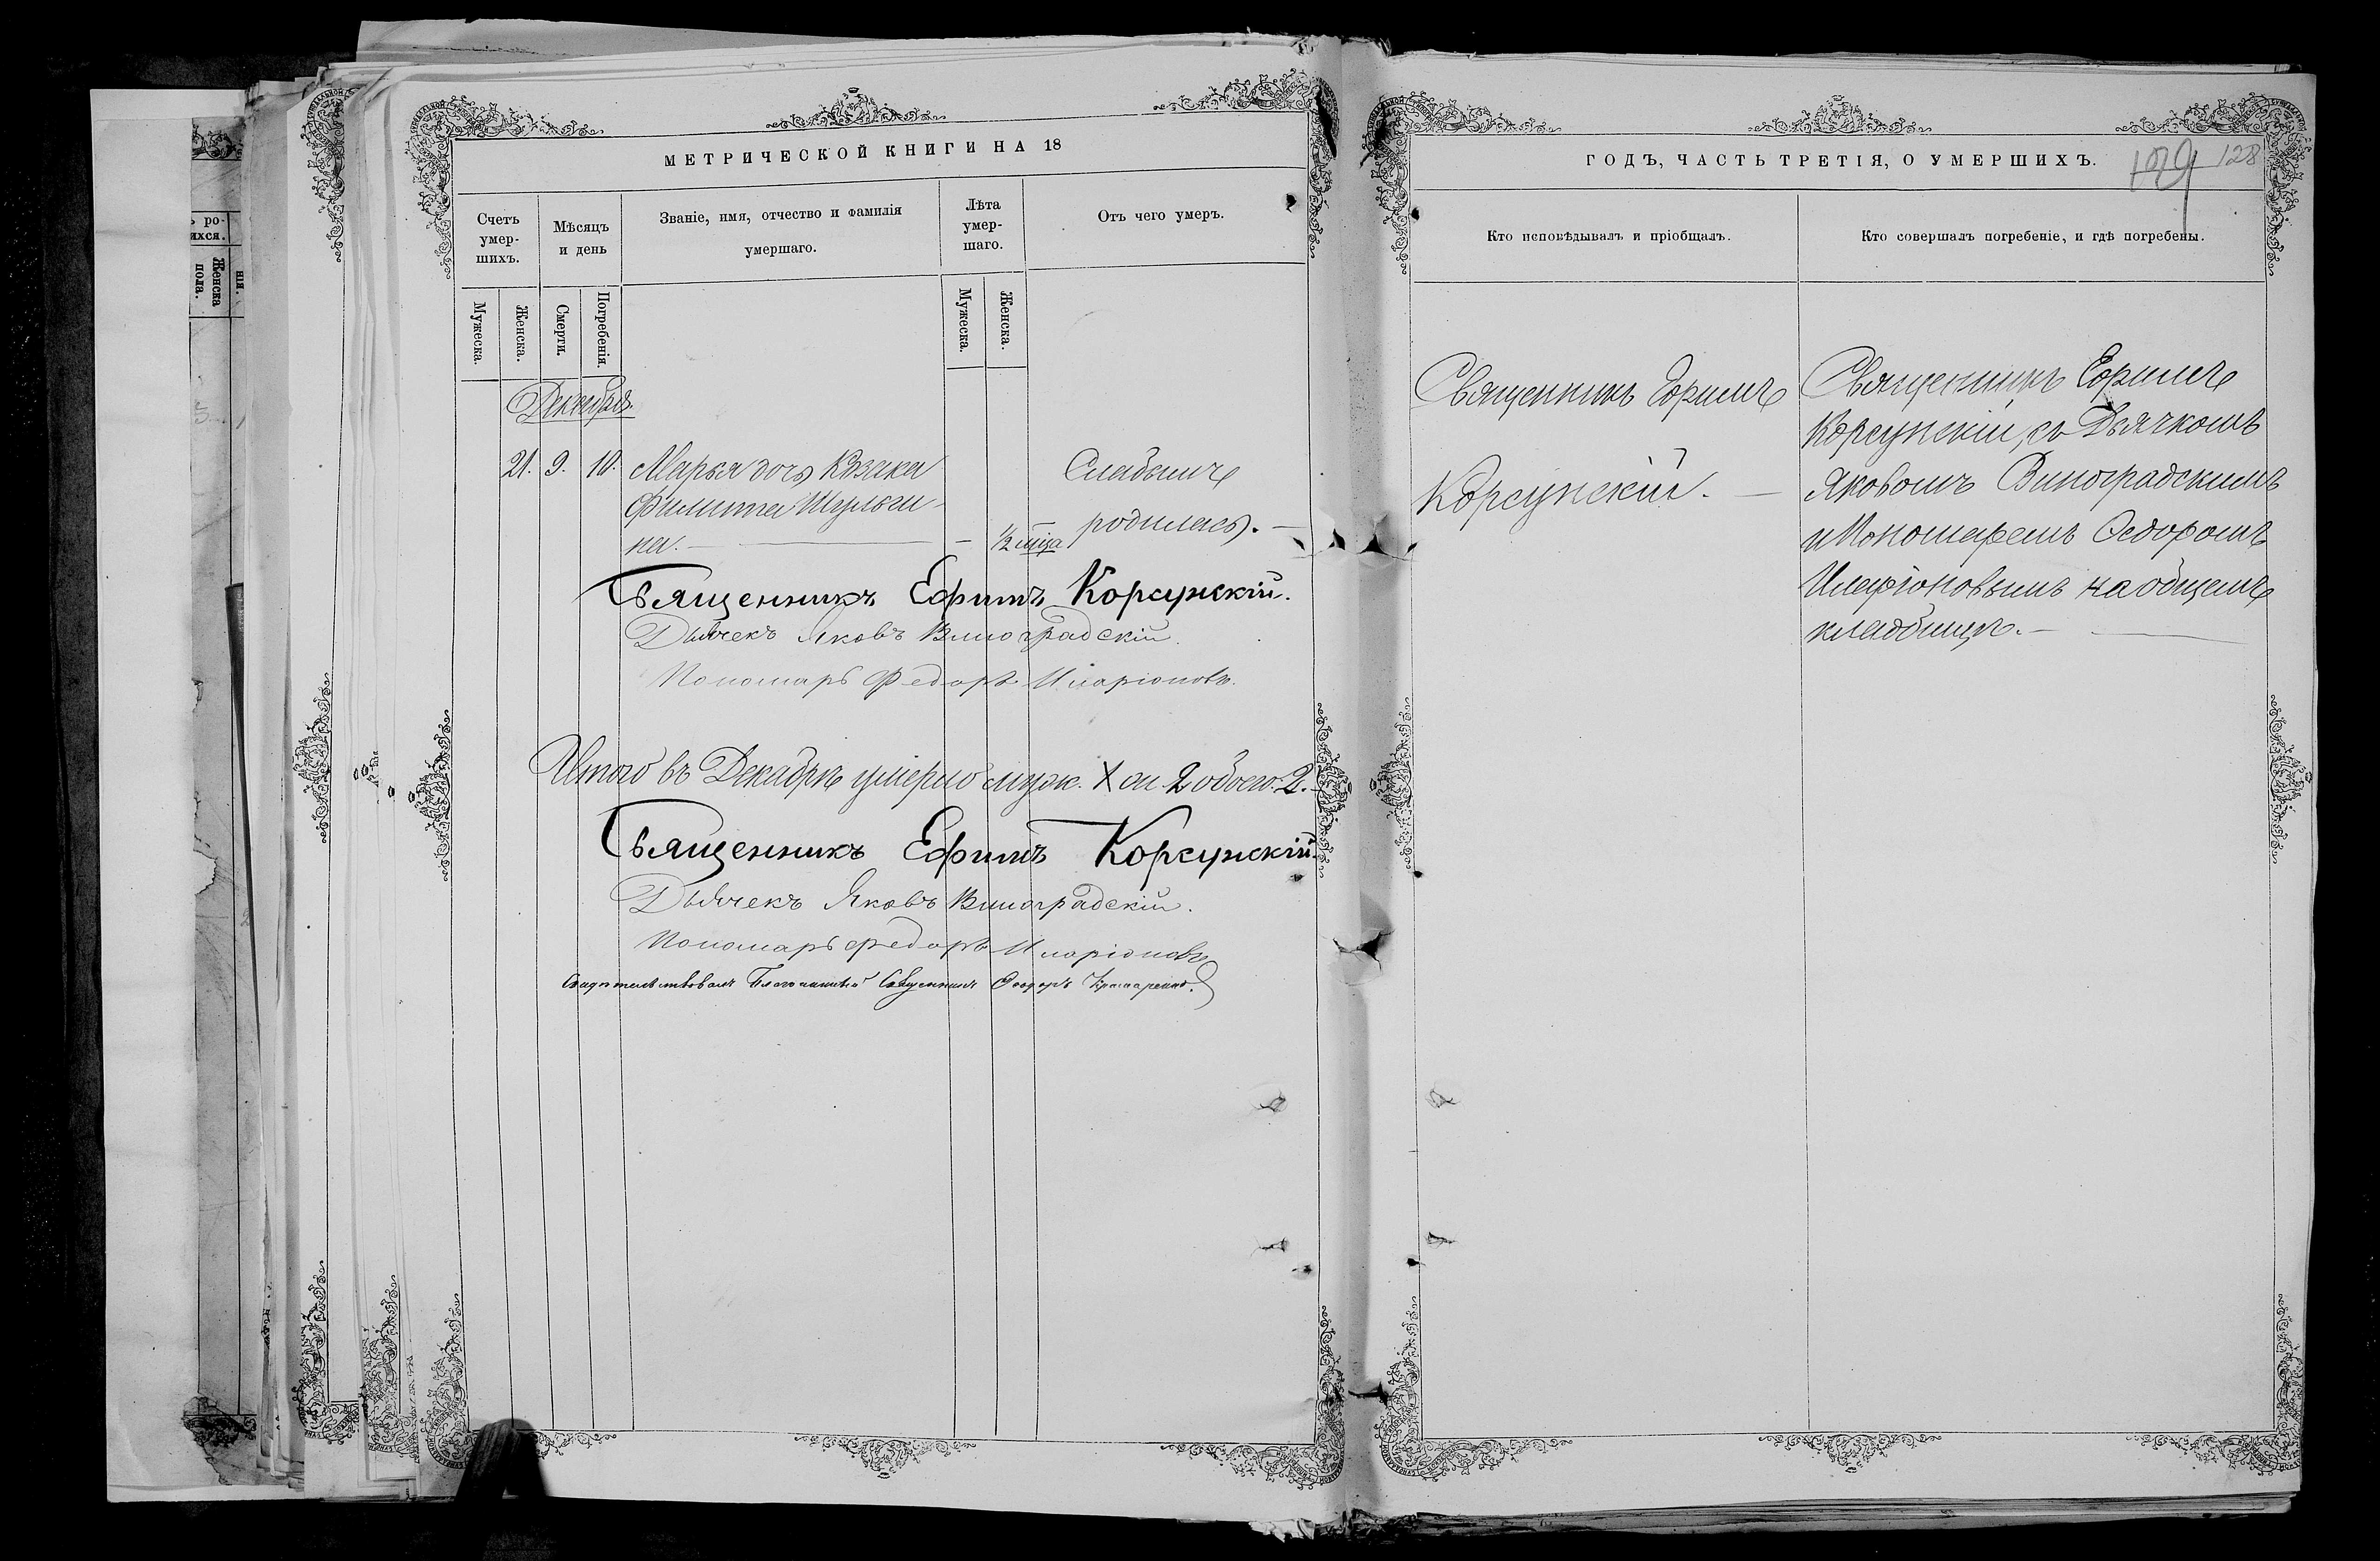 МЕТРИЧЕСКОЙ КНИГИ НА 18
Счетъ умер-шихъ.
Мѣсяцъ и день
Званіе, имя, отчество и фамилія умершаго.
Лѣта умер-шаго.
Отъ чего умеръ.
Мужеска.
Женска.
Смерти.
Погребенія.
Мужеска.
Женска.
Декабрь.
21. 9. 10. Марья дочь Козака
Филиппа Шульги-
на. — ½ мца
Слабымъ
родилась. —
Священникъ Ефимъ Корсунскій.
Дьячекъ Яковъ Виноградскій.
Пономарь Федоръ Иларіоновъ.
Итого въ Декабрѣ умерло муж. X ж. 2 обоего. 2.
Священникъ Ефимъ Корсунскій.
Дьячекъ Яковъ Виноградскій.
Пономарь Федоръ Иларіоновъ
Свидѣтельствовалъ Благочинный Священникъ Ѳеодоръ
ГОДЪ, ЧАСТЬ ТРЕТІЯ, О УМЕРШИХЪ.
109 128
Кто исповѣдывалъ и пріобщалъ.
Кто совершалъ погребеніе, и гдѣ погребены.
Священникъ Ефимъ
Корсунскій. —
Священникъ Ефимъ
Корсунскій, съ Дьячкомъ
Яковомъ Виноградскимъ
и Пономаремъ Ѳедоромъ
Иларіоновымъ на общемъ
кладбищѣ. —
ъ ро-
ихся.
Женска
пола.
нія.